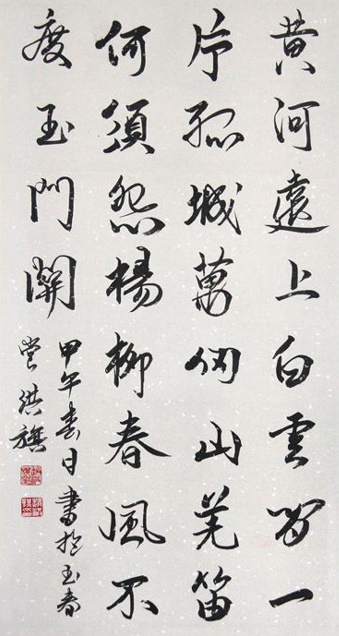 黄河遠上白雲間一
片孤城萬仞山羌笛
何須怨楊柳春風不
度玉門關
甲午春日書於玉春
堂洪旗